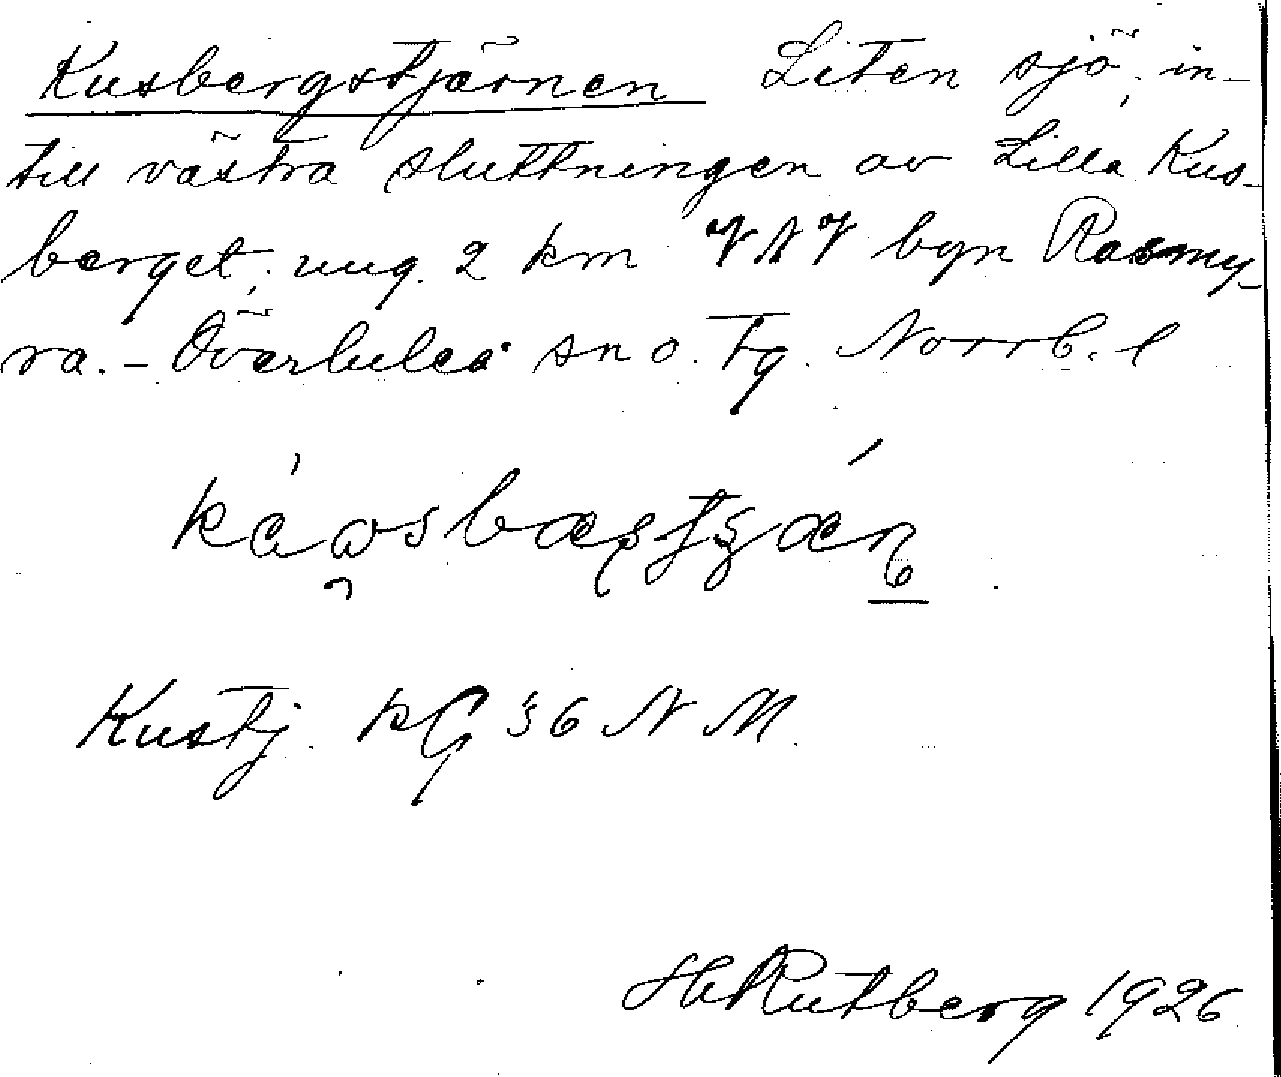 Kusbergstjärnen Liten sjö, in-
till västra sluttningen av Lilla Kus-
berget, ung. 2 km VNV byn Rasmy-
ra. - Överluleå sn o. tg. Norrb. l
Kustj. kG 36 N M
H Rutberg 1926